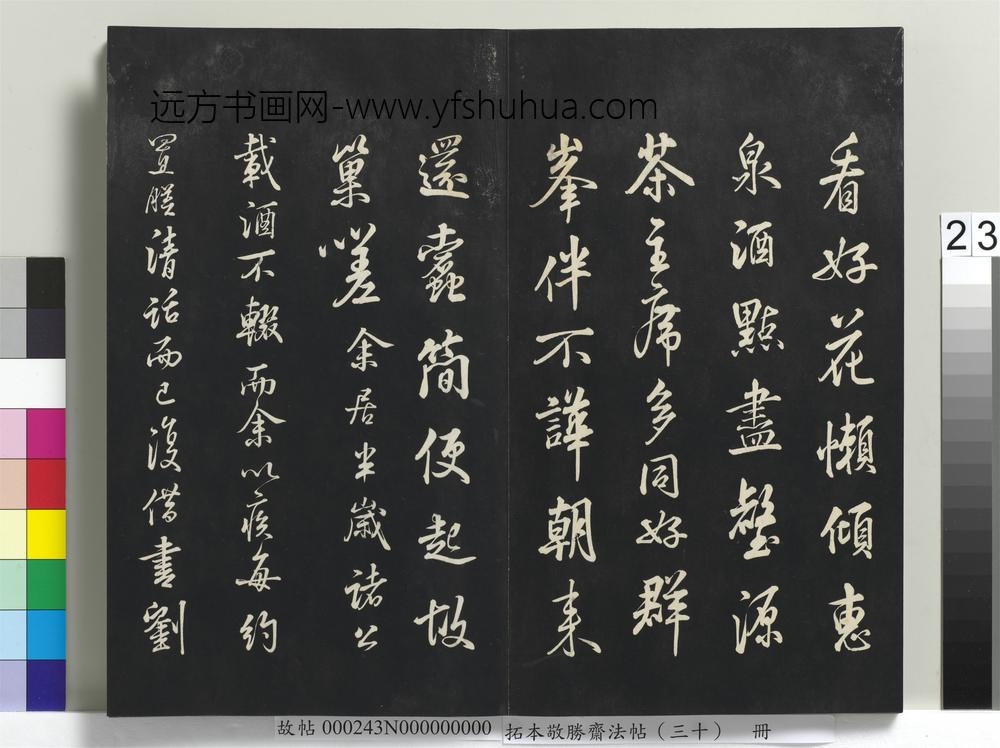 远方书画网-www.yfshuhua.com
看好花懶傾惠
泉酒點盡壑源
茶主席多同好群
峯伴不譁朝來
還蠹簡便起故
巢嗟余居半歲諸公
載酒不輟而余以疾每約
置膳清話而已復借書劉
23
故帖 000243N000000000 拓本敬勝齋法帖（三十） 冊